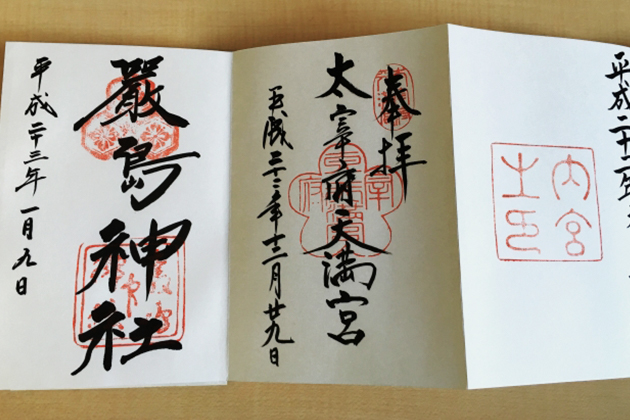 平成二十二年
内宮之印
奉拝
太宰府天満宮
平成二十二年十二月廿九日
嚴島神社
平成二十三年一月九日